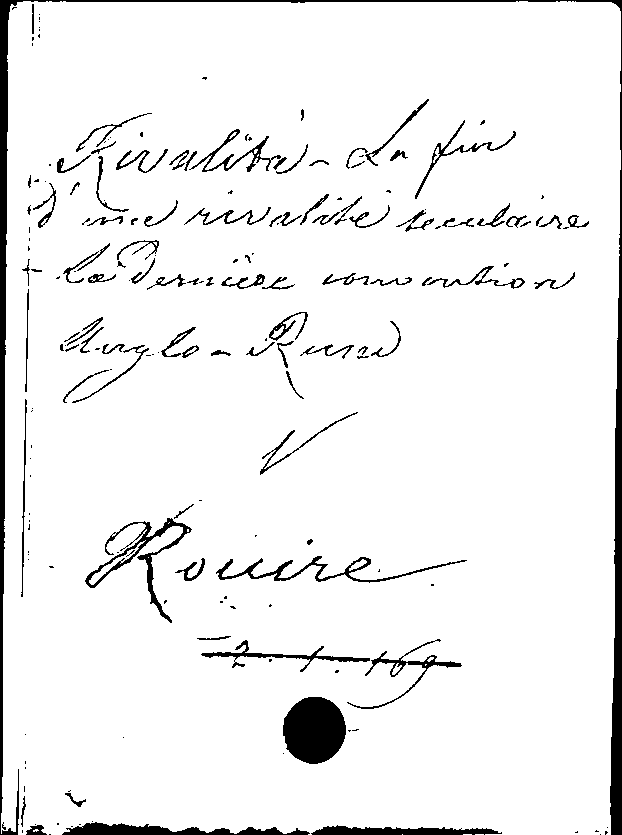 Rivalità - La fin
d'une rivalité seculaire
- La Dernière convention
Anglo-Russe
V
Rouire
2.1.169